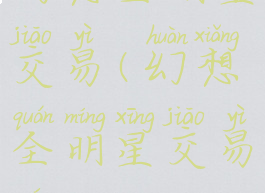 jiāo yì huàn xiǎng
交易(幻想
quán míng xīng jiāo yì
全明星交易